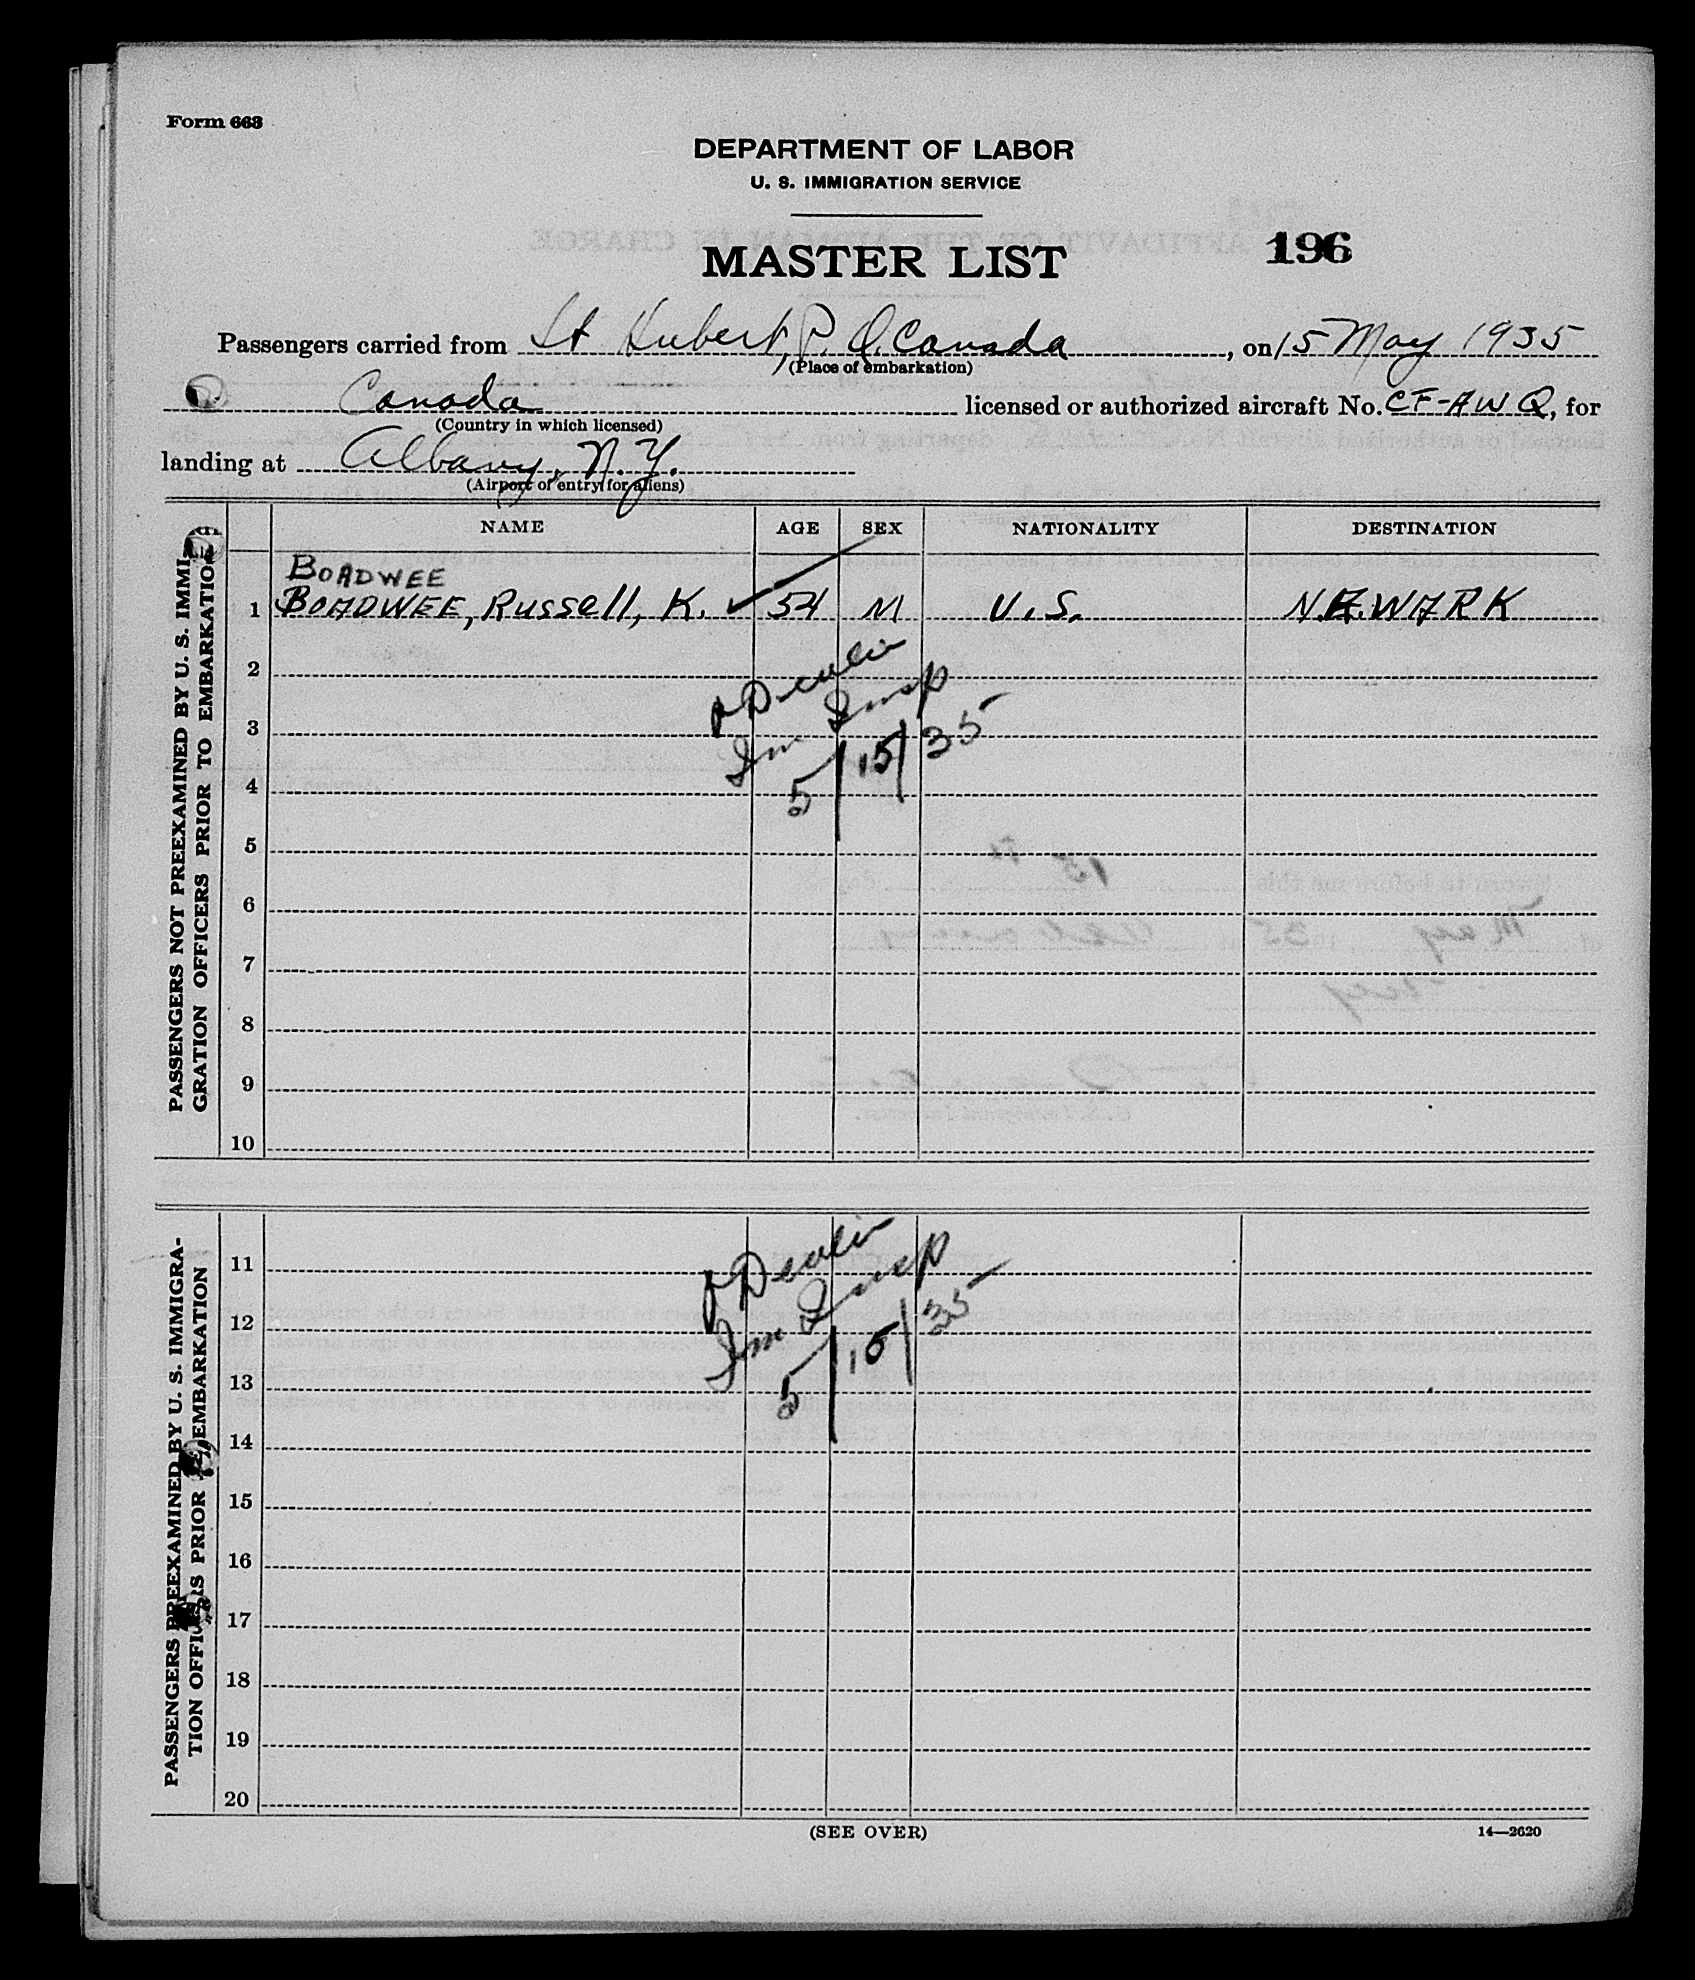 Form 663
DEPARTMENT OF LABOR
U. S. IMMIGRATION SERVICE
MASTER LIST
196
Passengers carried from St Hubert, P. Q. Canada, on 15 May 1935
(Place of embarkation)
Canada licensed or authorized aircraft No. CF-AWQ, for
(Country in which licensed)
landing at Albany, N.Y.
(Airport of entry for aliens)
PASSENGERS NOT PREEXAMINED BY U. S. IMMI-
GRATION OFFICERS PRIOR TO EMBARKATION
NAME AGE SEX NATIONALITY DESTINATION
BOADWEE
1 BOADWEE, Russell, K. ✓ 54 M U.S. NEWARK
2
3
4
5
6
7
8
9
10
Devlin
Im Insp
5/15/35
PASSENGERS PREEXAMINED BY U. S. IMMIGRA-
TION OFFICERS PRIOR TO EMBARKATION
11
12
13
14
15
16
17
18
19
20
Devlin
Im Insp
5/15/35
(SEE OVER)
14—2620